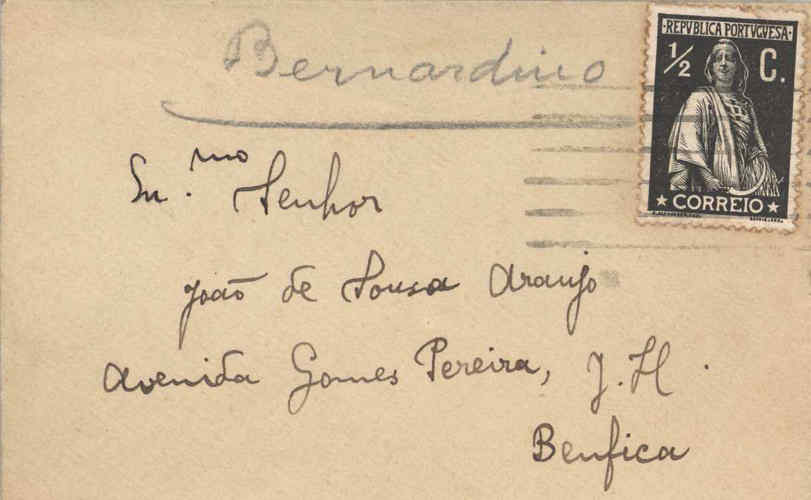 Bernardino
REPVBLICA PORTVGVESA
1/2 C.
CORREIO
Exmo Senhor
João de Sousa Araujo
Avenida Gomes Pereira, J. H.
Benfica